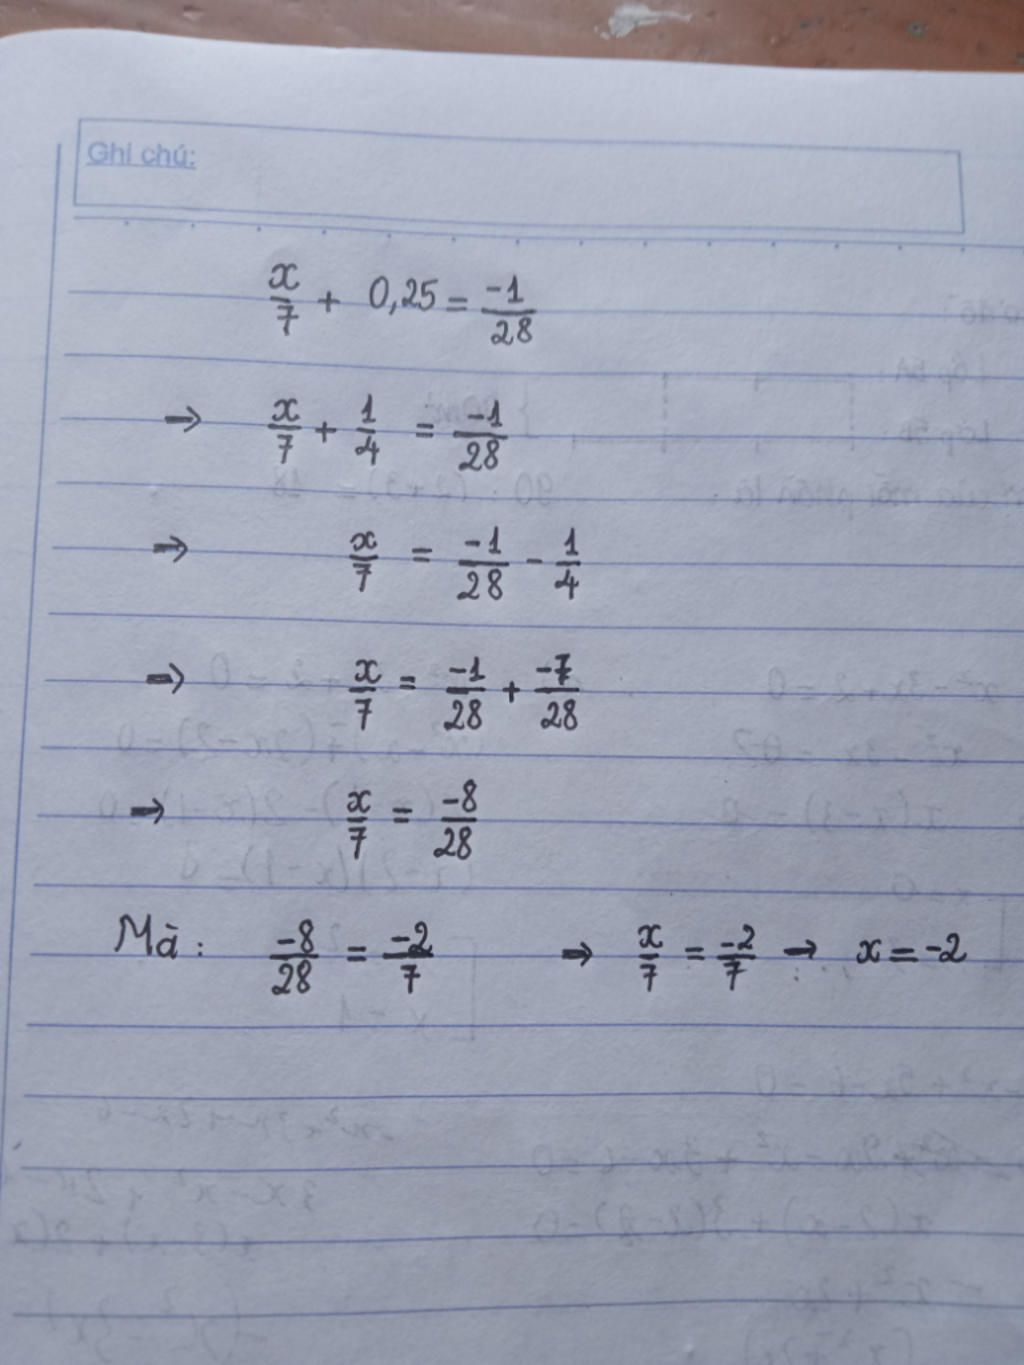 Ghi chú:
x/7 + 0,25 = -1/28
→ x/7 + 1/4 = -1/28
→ x/7 = -1/28 - 1/4
→ x/7 = -1/28 + -7/28
→ x/7 = -8/28
Mà: -8/28 = -2/7 → x/7 = -2/7 → x = -2